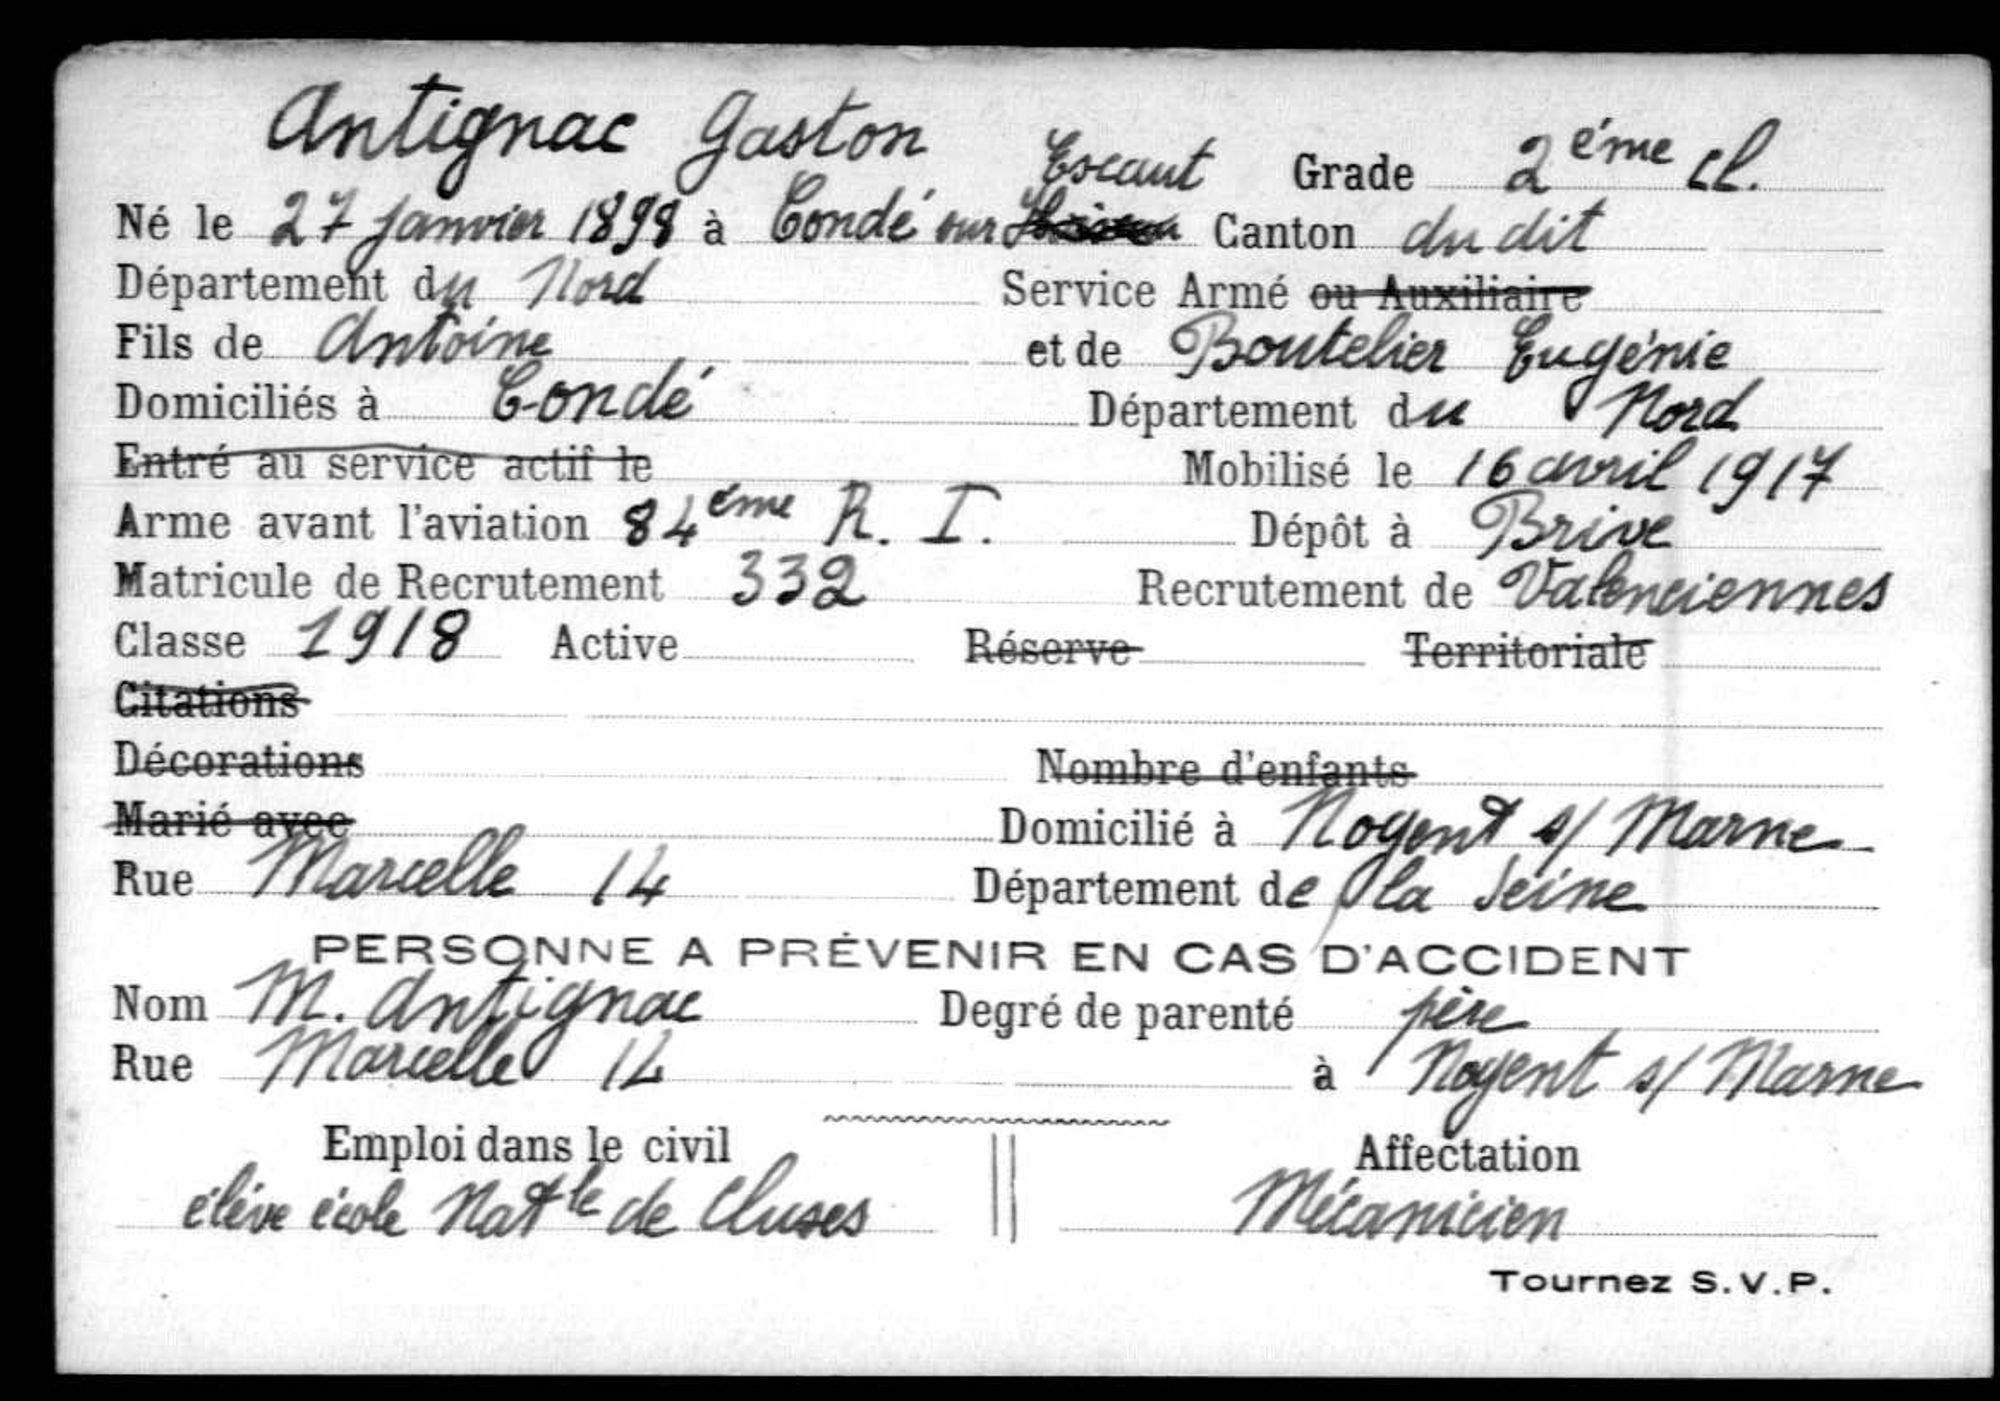 Antignac Gaston
Escaut Grade 2ème cl.
Né le 27 janvier 1898 à Condé sur Canton du dit
Département du Nord Service Armé ou Auxiliaire
Fils de Antoine et de Boutelier Eugénie
Domiciliés à Condé Département du Nord
Entré au service actif le Mobilisé le 16 avril 1917
Arme avant l'aviation 84ème R. I. Dépôt à Brive
Matricule de Recrutement 332 Recrutement de Valenciennes
Classe 1918 Active Réserve Territoriale
Citations
Décorations Nombre d'enfants
Marié avec Domicilié à Nogent s/ Marne
Rue Marcelle 14 Département de la Seine
PERSONNE A PRÉVENIR EN CAS D'ACCIDENT
Nom M. Antignac Degré de parenté père
Rue Marcelle 14 à Nogent s/ Marne
Emploi dans le civil Affectation
élève école Natle de Cluses Mécanicien
Tournez S.V.P.